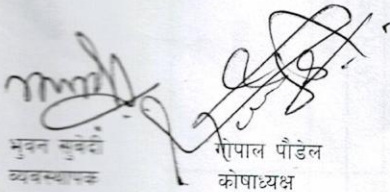 भुवन सुवेदी
व्यवस्थापक
गोपाल पौडेल
कोषाध्यक्ष